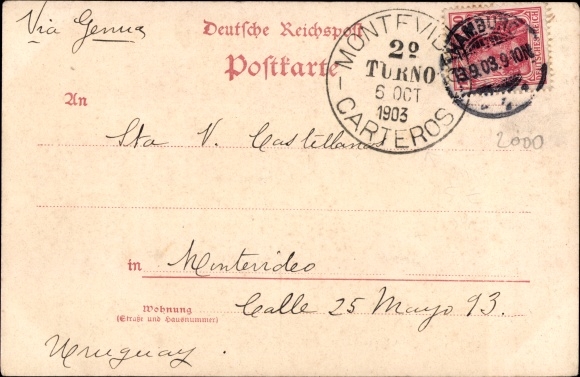 Via Genua
Deutsche Reichspost
Postkarte
MONTEVIDEO
2º
TURNO
6 OCT
1903
CARTEROS
HAMBURG
.9.03.9-10N
2000
An
Sta V. Castellanos
in Montevideo
Wohnung
(Straße und Hausnummer)
Calle 25 Mayo 93.
Uruguay.